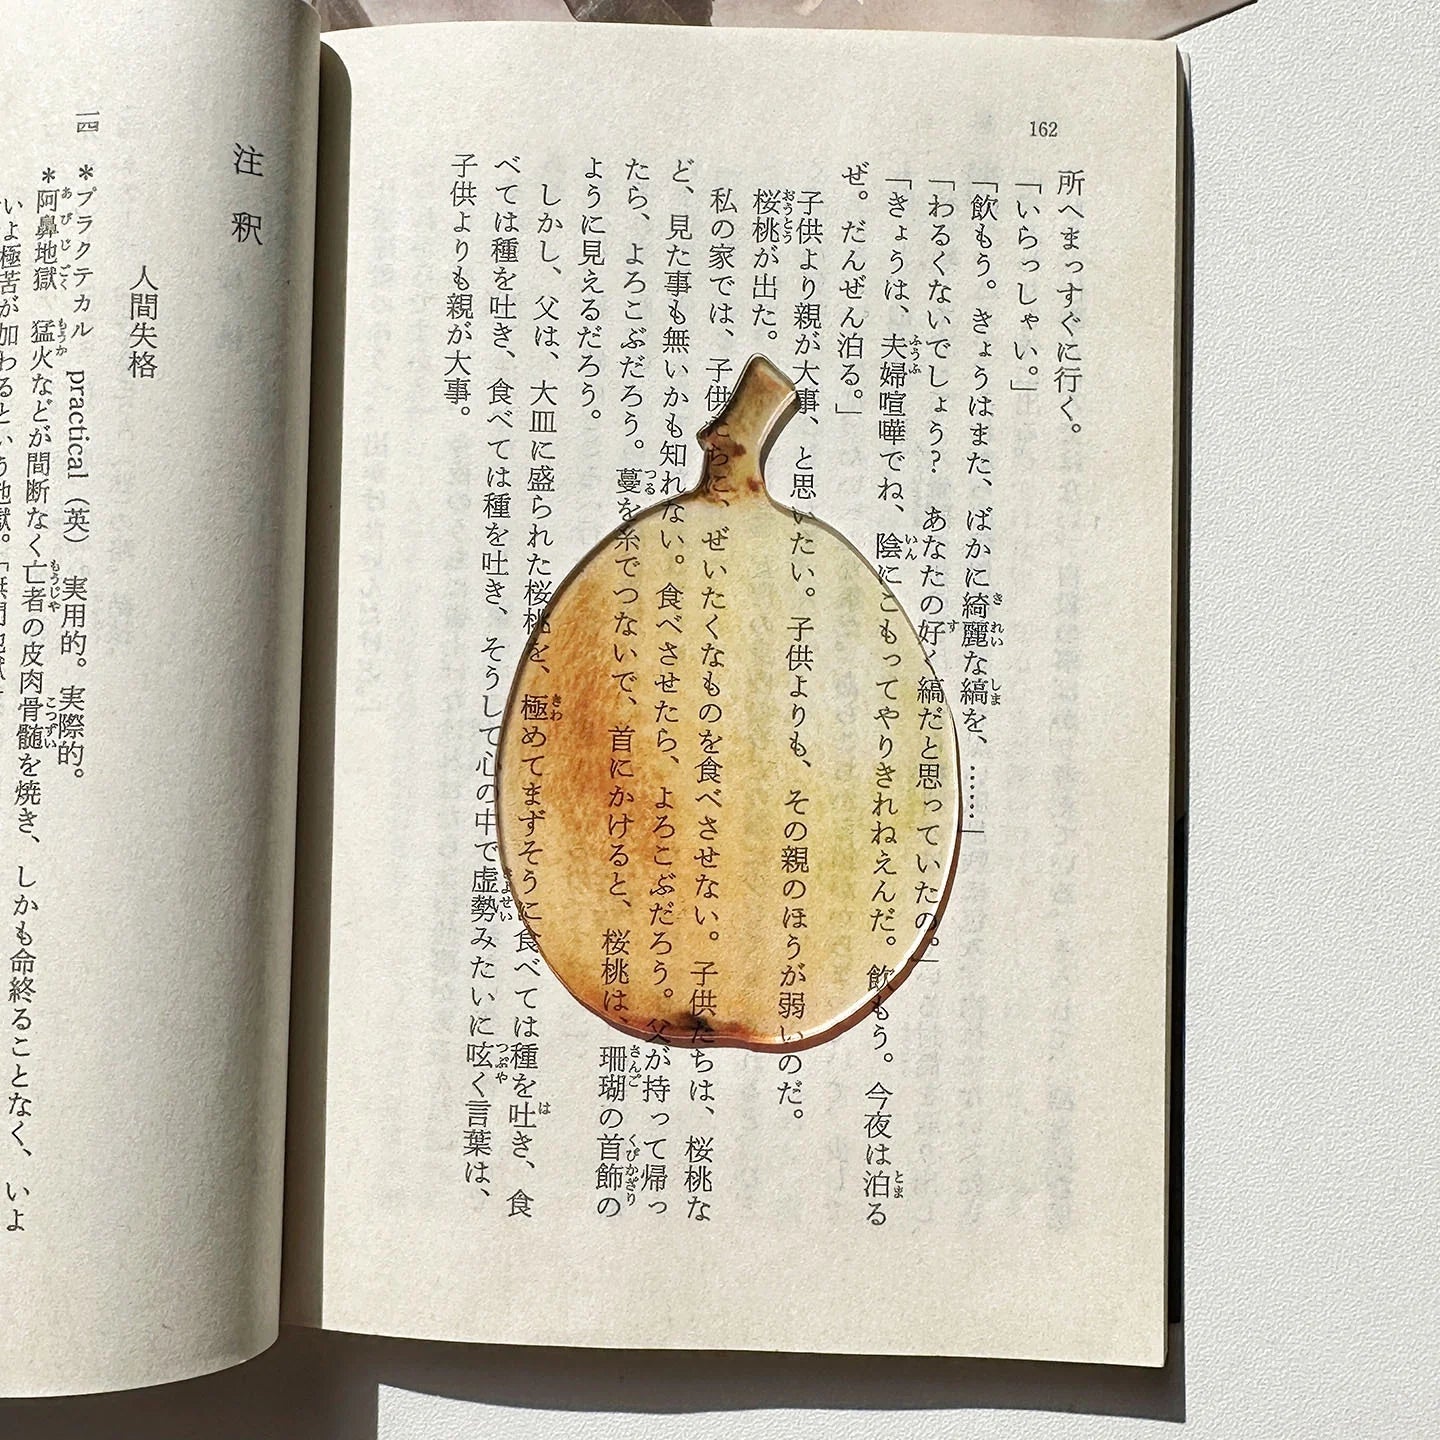 162
所へまっすぐに行く。
「いらっしゃい。」
「飲もう。きょうはまた、ばかに綺麗な縞を、……」
「わるくないでしょう？　あなたの好く縞だと思っていたの。」
「きょうは、夫婦喧嘩でね、陰にこもってやりきれねえんだ。飲もう。今夜は泊る
ぜ。だんぜん泊る。」
子供より親が大事、と思いたい。子供よりも、その親のほうが弱いのだ。
桜桃が出た。
私の家では、子供たちに、ぜいたくなものを食べさせない。子供たちは、桜桃な
ど、見た事も無いかも知れない。食べさせたら、よろこぶだろう。父が持って帰っ
たら、よろこぶだろう。蔓を糸でつないで、首にかけると、桜桃は、珊瑚の首飾の
ように見えるだろう。
しかし、父は、大皿に盛られた桜桃を、極めてまずそうに食べては種を吐き、食
べては種を吐き、食べては種を吐き、そうして心の中で虚勢みたいに呟く言葉は、
子供よりも親が大事。
注釈
人間失格
一四 ＊プラクテカル　practical（英）　実用的。実際的。
＊阿鼻地獄　猛火などが間断なく亡者の皮肉骨髄を焼き、しかも命終ることなく、いよ
いよ極苦が加わるという地獄。